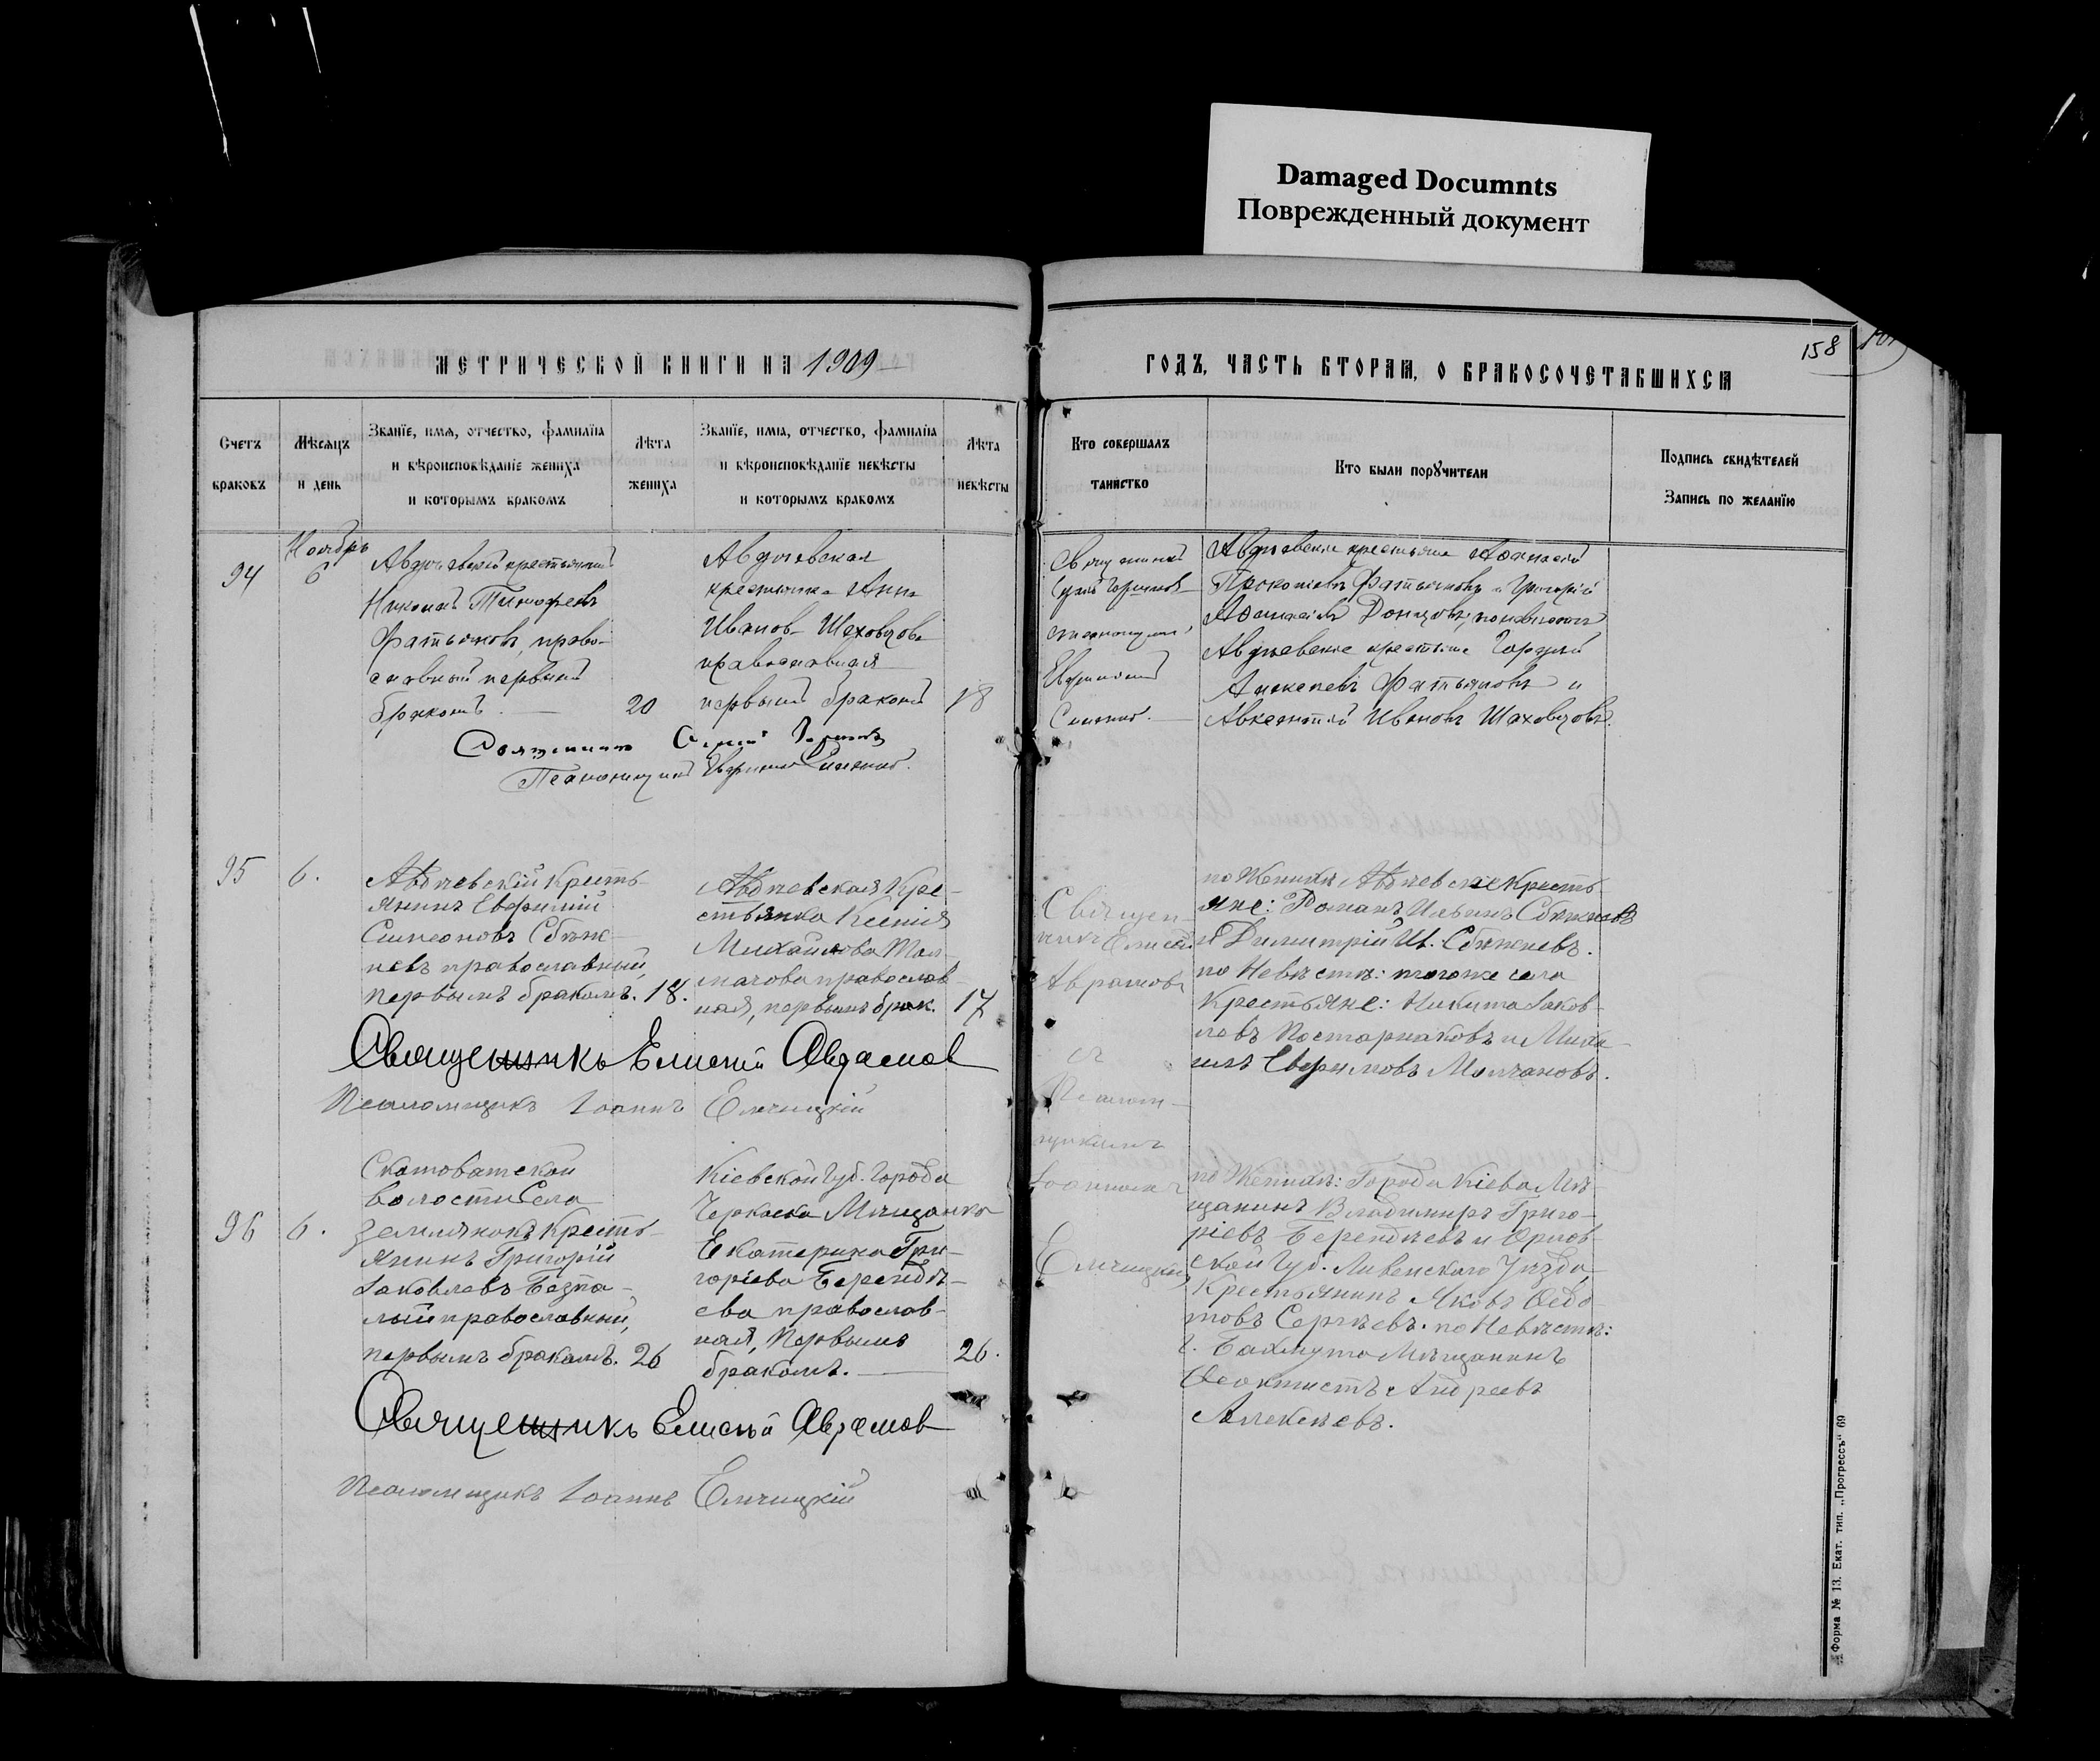 Damaged Documnts
Поврежденный документ
МЕТРИЧЕСКОЙ КНИГИ НА 1909
ГОДЪ, ЧАСТЬ ВТОРАЯ, О БРАКОСОЧЕТАВШИХСЯ
158
Счетъ браковъ
Мѣсяцъ и день
Званїе, имя, отчество, фамилїя
и вѣроисповѣданїе жениха
и которымъ бракомъ
Лѣта жениха
Званїе, имя, отчество, фамилїя
и вѣроисповѣданїе невѣсты
и которымъ бракомъ
Лѣта невѣсты
Кто совершалъ
таинство
Кто были порꙋчители
Подпись свидѣтелей
Запись по желанїю
94
Ноябрь
6
Авдѣевскій крестьянинъ
Тимофеевъ
Фатьяновъ, право-
славный первымъ
бракомъ.
20
Авдѣевская
крестьянка Анна
Иванов. Шаховцова
православная
первымъ бракомъ
18
Священникъ
псаломщикъ
Евфимій
Авдѣевские крестьяне Афанасій
Прокопіевъ Фатьяновъ и Григорій
Донцовъ,
Авдѣевские крестьяне
Алексѣевъ Фатьяновъ и
Авксентій Ивановъ Шаховцовъ.
Священникъ
Псаломщикъ Евфимій
95
6.
Авдѣевскій Кресть-
янинъ Евфимій
Симеоновъ Сбѣж-
невъ православный,
первымъ бракомъ. 18.
Авдѣевская Кре-
стьянка Ксенія
Михайлова Тол-
мачова православ-
ная, первымъ брак.
17
Священ-
никъ Елисей
Аврамовъ
и
Псалом-
щикомъ
Іоанномъ
Елчицкій
по Женихѣ Авдѣевские кресть-
яне: Романъ Ильинъ Сбѣжневъ
и Димитрій Ив. Сбѣжневъ.
по Невѣстѣ: тогоже села
Крестьяне: Никита Іаков-
левъ Постарнаковъ и Миха-
илъ Евфимовъ Молчановъ.
Священникъ Елисей Аврамов
Псаломщикъ Іоаннъ Елчицкій
96
6.
Скотоватской
волости Села
Землянокъ Кресть-
янинъ Григорій
Іаковлевъ Безпа-
лый православный,
первымъ бракомъ. 26
Кіевской Губ. Города
Черкаска Мѣщанка
Екатерина Гри-
горіева Берендѣ-
ева православ-
ная, Первымъ
бракомъ.
26.
по Женихѣ: Города Кіева Мѣ-
щанинъ Владимиръ Григо-
ріевъ Берендѣевъ и Орлов-
ской Губ. Ливенскаго Уѣзда
Крестьянинъ Яковъ Ѳедо-
товъ Сергѣевъ. по Невѣстѣ:
г. Бахмута Мѣщанинъ
Ѳеоктистъ Андреевъ
Алексѣевъ.
Священникъ Елисѣй Аврамов
Псаломщикъ Іоаннъ Елчицкій
Форма № 13. Екат. тип. „Прогрессъ“ 69